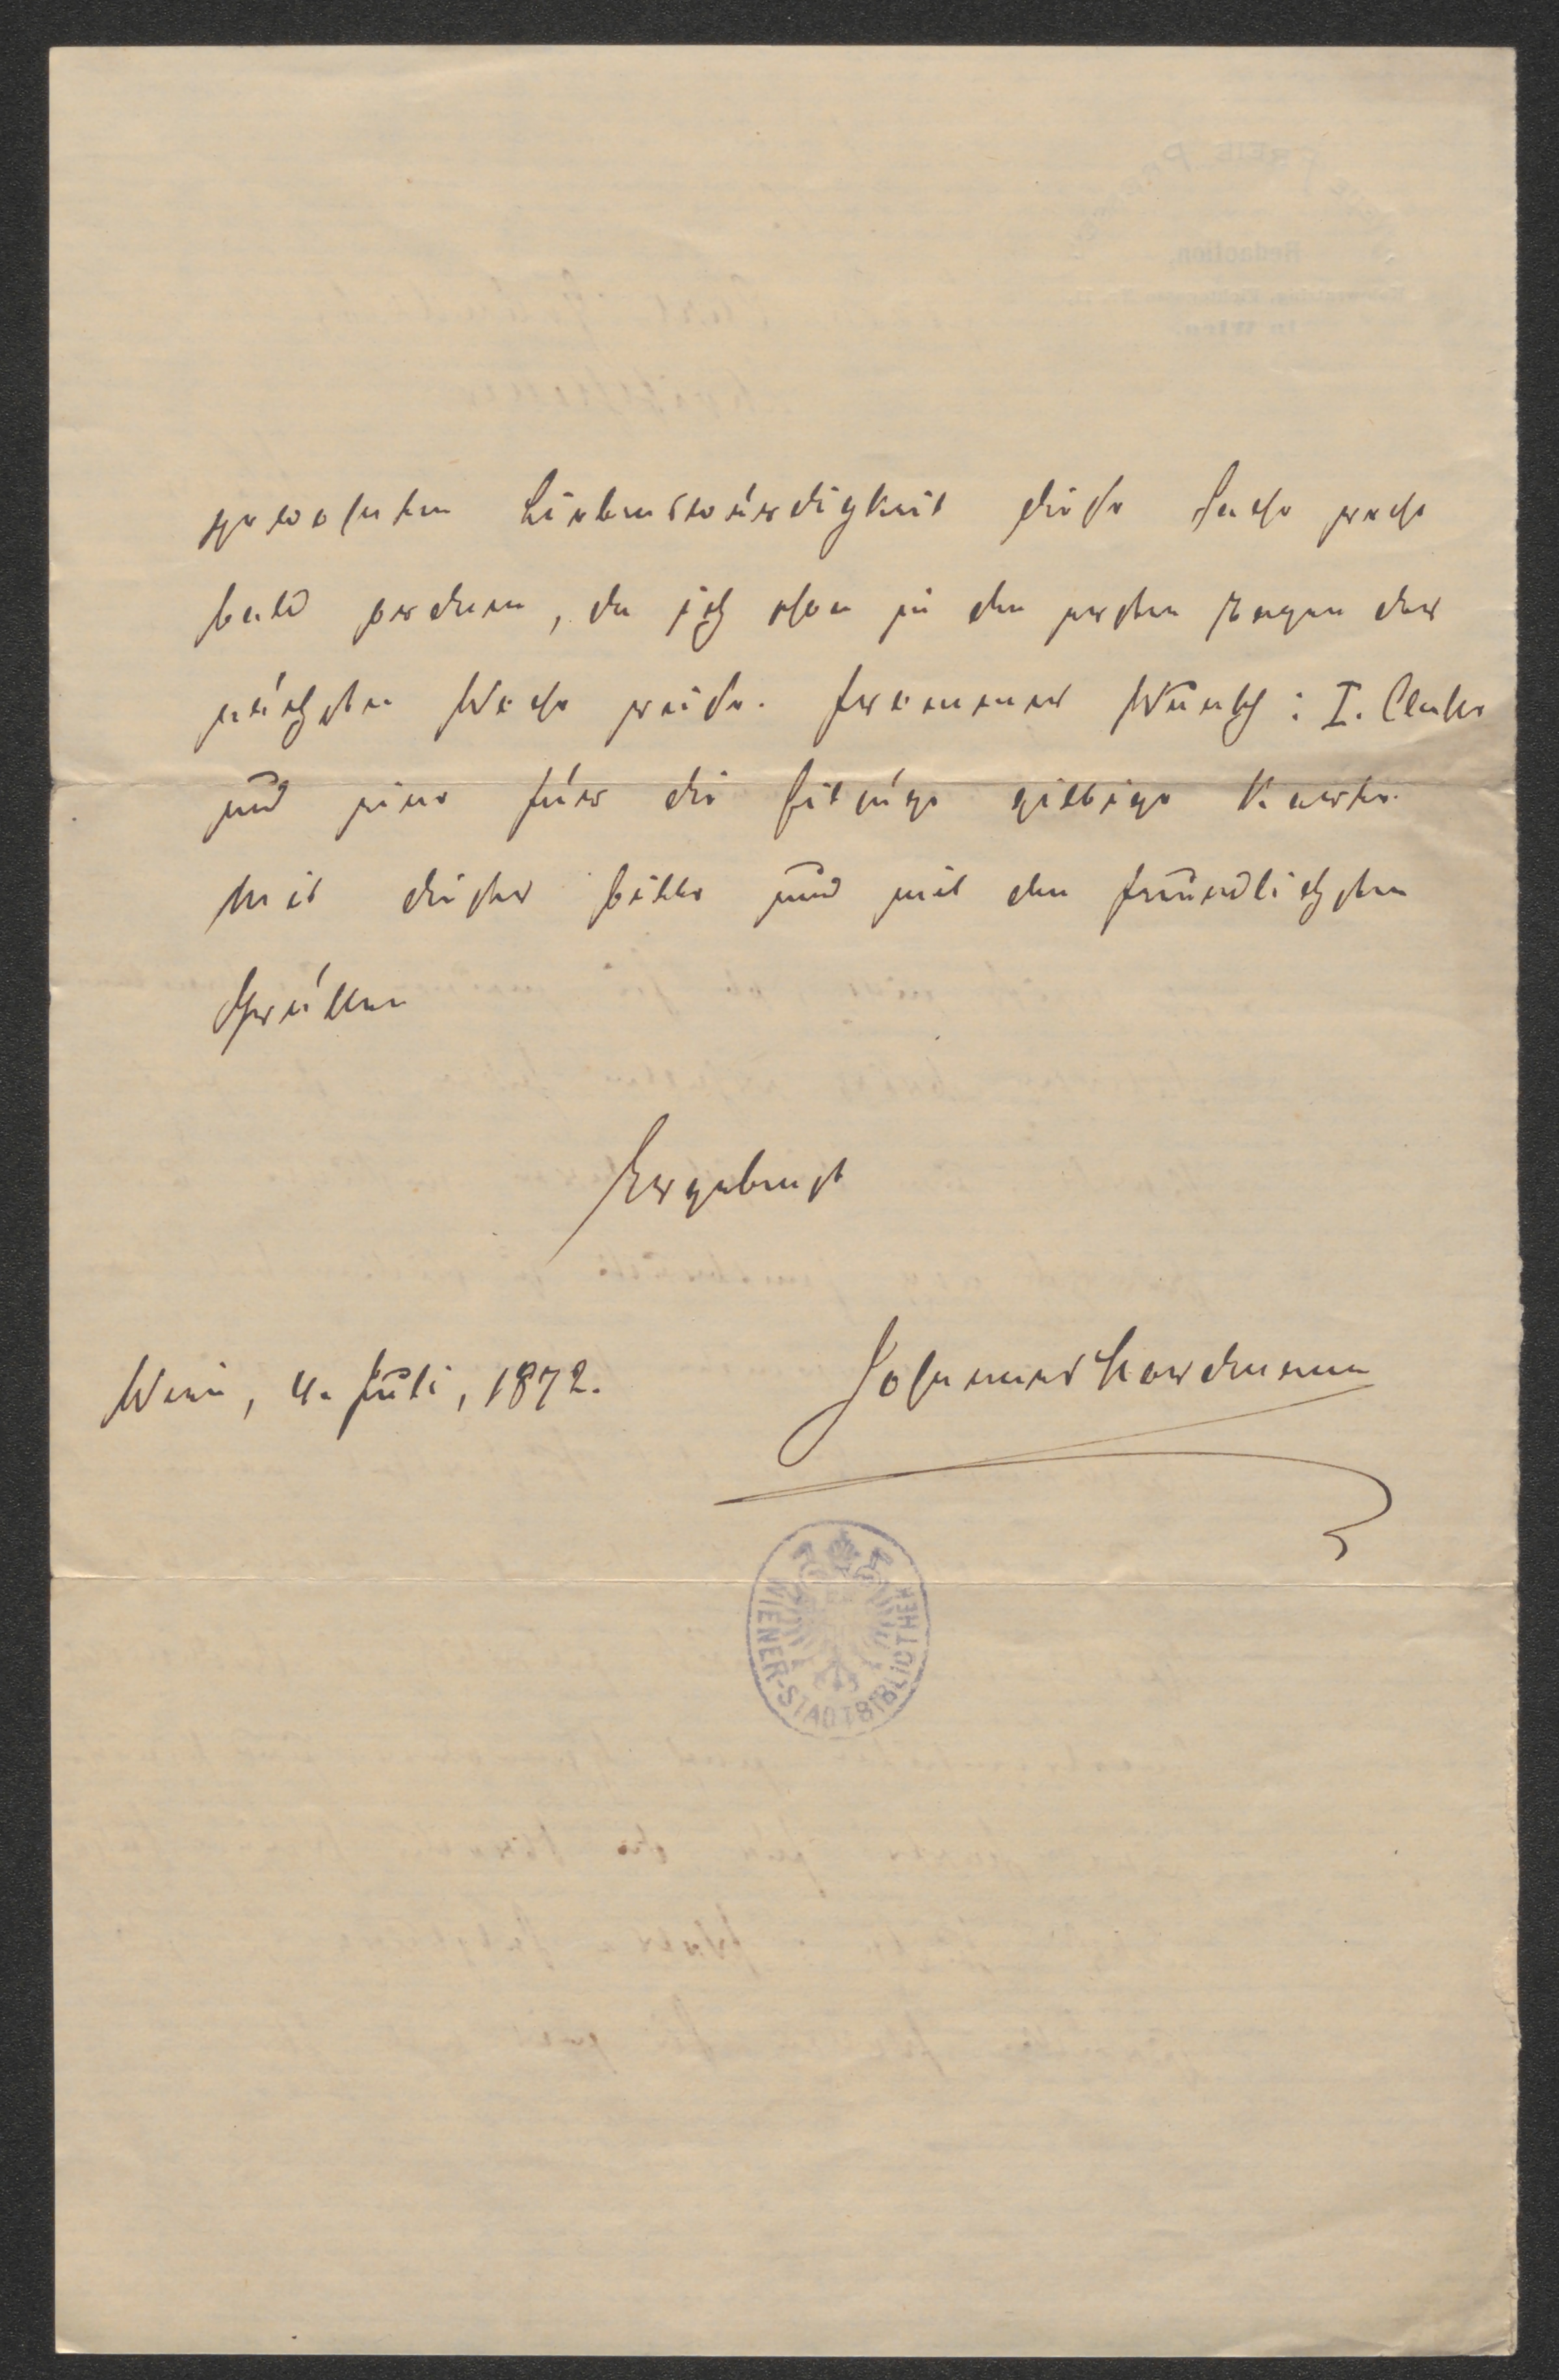 gewohnten Liebenswürdigkeit diese Sache recht
bald ordnen, da ich schon in den ersten Tagen der
nächsten Woche reise. Frommer Wunsch: I. Classe
und eine für die Eilzüge giltige Karte.
Mit dieser Bitte und mit den freundlichsten
Grüßen
Ergebenst
Wien, 4. Juli, 1872.
Johannes Nordmann
WIENER-STADTBIBLIOTHEK